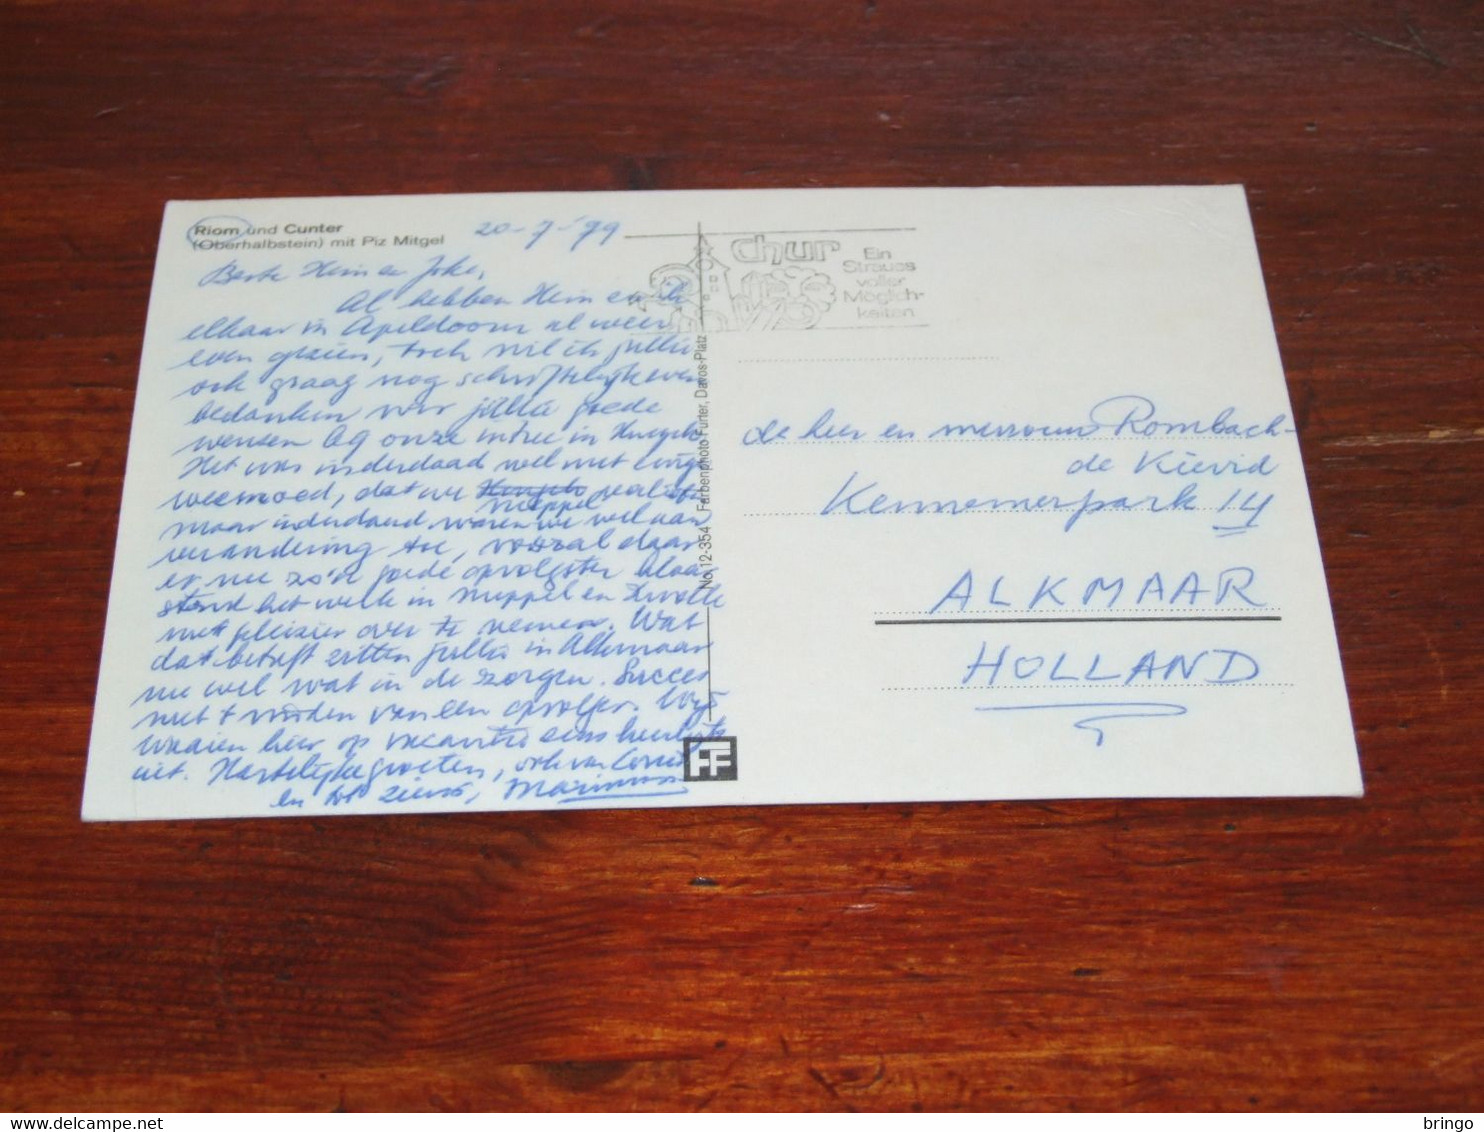 Riom und Cunter
(Oberhalbstein) mit Piz Mitgel
20-7-'79
Beste Hein en Joke,
Al hebben Hein en ik
elkaar in Apeldoorn al weer
even gezien, toch wil ik jullie
ook graag nog schriftelijk even
bedanken voor jullie goede
wensen bij onze intree in
Het was inderdaad wel met enige
weemoed, dat we Meppel
maar inderdaad waren we wel aan
verandering toe, vooral daar
er nu zo'n goede opvolgster klaar
stond het werk in Meppel en Zwolle
met plezier over te nemen. Wat
dat betreft zitten jullie in Alkmaar
nu wel wat in de zorgen. Succes
met 't vinden van een opvolger. Wij
waaien hier op vacantie eens heerlijk
uit. Hartelijke groeten, ook van
en tot ziens, Marinus
No. 12-354 Farbenphoto Furter, Davos-Platz
FF
chur
Ein
Strauss
voller
Möglich-
keiten
de heer en mevrouw Rombach-
de Kievid
Kennemerpark 14
ALKMAAR
HOLLAND
delcampe.net
bringo